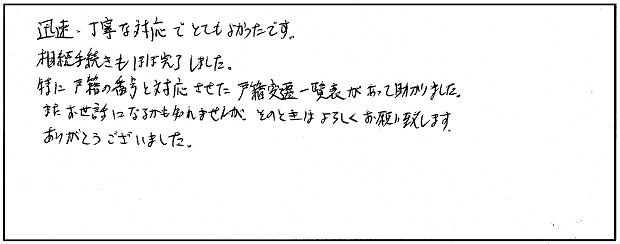 迅速・丁寧な対応でとてもよかったです。
相続手続きもほぼ完了しました。
特に戸籍の番号と対応させた戸籍変遷一覧表があって助かりました。
またお世話になるかも知れませんが、そのときはよろしくお願い致します。
ありがとうございました。